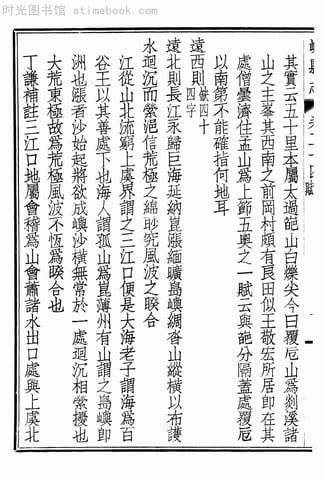 时光图书馆 atimebook.com
嵊縣志 卷二十四 賦
其實云五十里本屬太過皰山白爍尖今曰覆卮山爲剡溪諸
山之主峯其西南之前岡村頗有良田似王敬宏所居卽在其
處僧曇濟住孟山爲上節五奥之一賦云與皰分隔蓋處覆卮
以南第不能確指何地耳
遠西則缺四十四字
遠北則長江永歸巨海延納崑漲緬曠島嶼綢沓山縱橫以布護
水迴沉而縈浥信荒極之綿眇究風波之睽合
江從山北流窮上虞界謂之三江口便是大海老子謂海爲百
谷王以其善處下也海人謂孤山爲崑薄州有山謂之島嶼卽
洲也漲者沙始起將欲成嶼沙橫無常於一處迴沉相縈擾也
大荒東極故爲荒極風波不恆爲睽合也
丁謙補註三江口地屬會稽爲山會蕭諸水出口處與上虞北